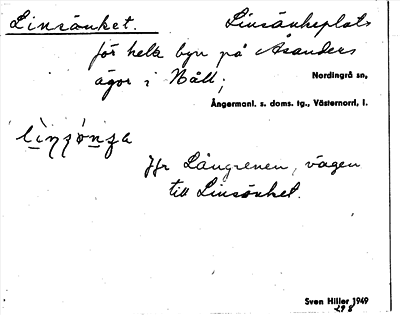 Linsänket. Linsänkeplats
för hela byn på Åsanders
ägor i Näll;
Nordingrå sn,
Ångermanl. s. doms. tg., Västernorrl. l.
Jfr Långrenen, vägen
till Linsänket.
Sven Hiller 1949
298